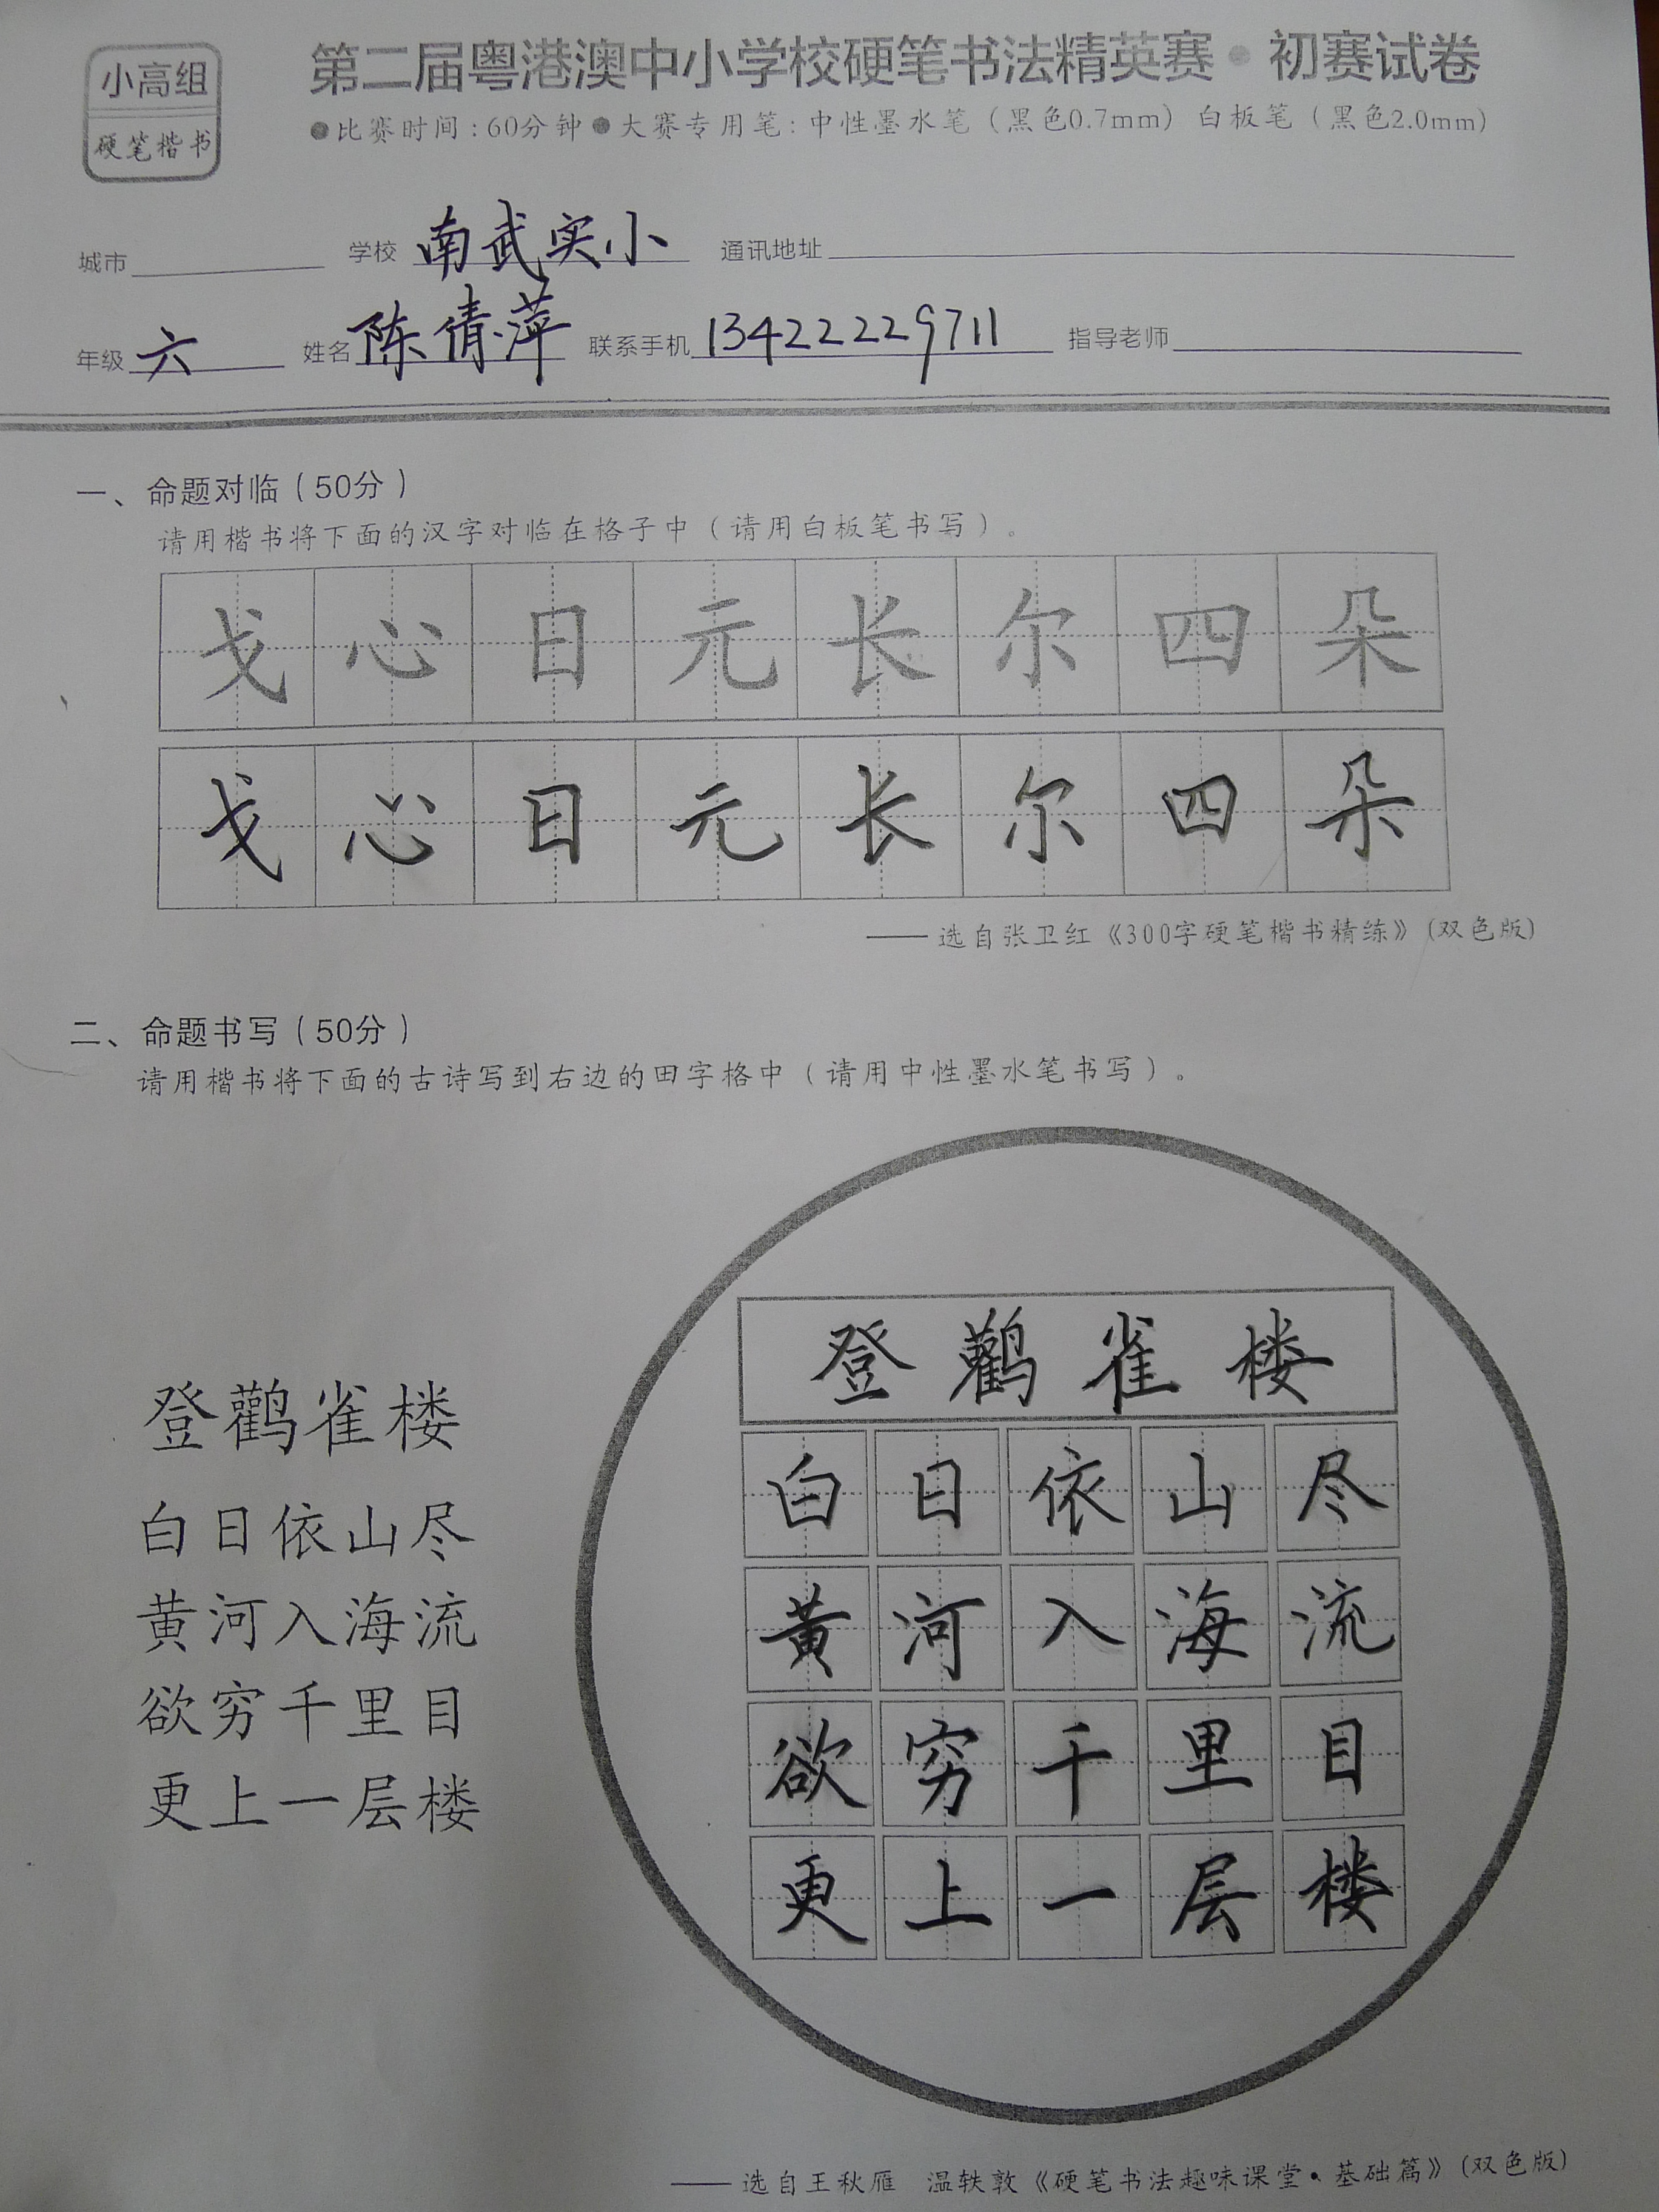 小高组
硬笔楷书
第二届粤港澳中小学校硬笔书法精英赛·初赛试卷
●比赛时间:60分钟●大赛专用笔:中性墨水笔(黑色0.7mm) 白板笔(黑色2.0mm)
城市 学校 南武实小 通讯地址
年级 六 姓名 陈倩萍 联系手机 13422229711 指导老师
一、命题对临(50分)
请用楷书将下面的汉字对临在格子中(请用白板笔书写)。
戈心日元长尔四朵
戈心日元长尔四朵
——选自张卫红《300字硬笔楷书精练》(双色版)
二、命题书写(50分)
请用楷书将下面的古诗写到右边的田字格中(请用中性墨水笔书写)。
登鹳雀楼
白日依山尽
黄河入海流
欲穷千里目
更上一层楼
登鹳雀楼
白日依山尽
黄河入海流
欲穷千里目
更上一层楼
——选自王秋雁 温轶敦《硬笔书法趣味课堂·基础篇》(双色版)